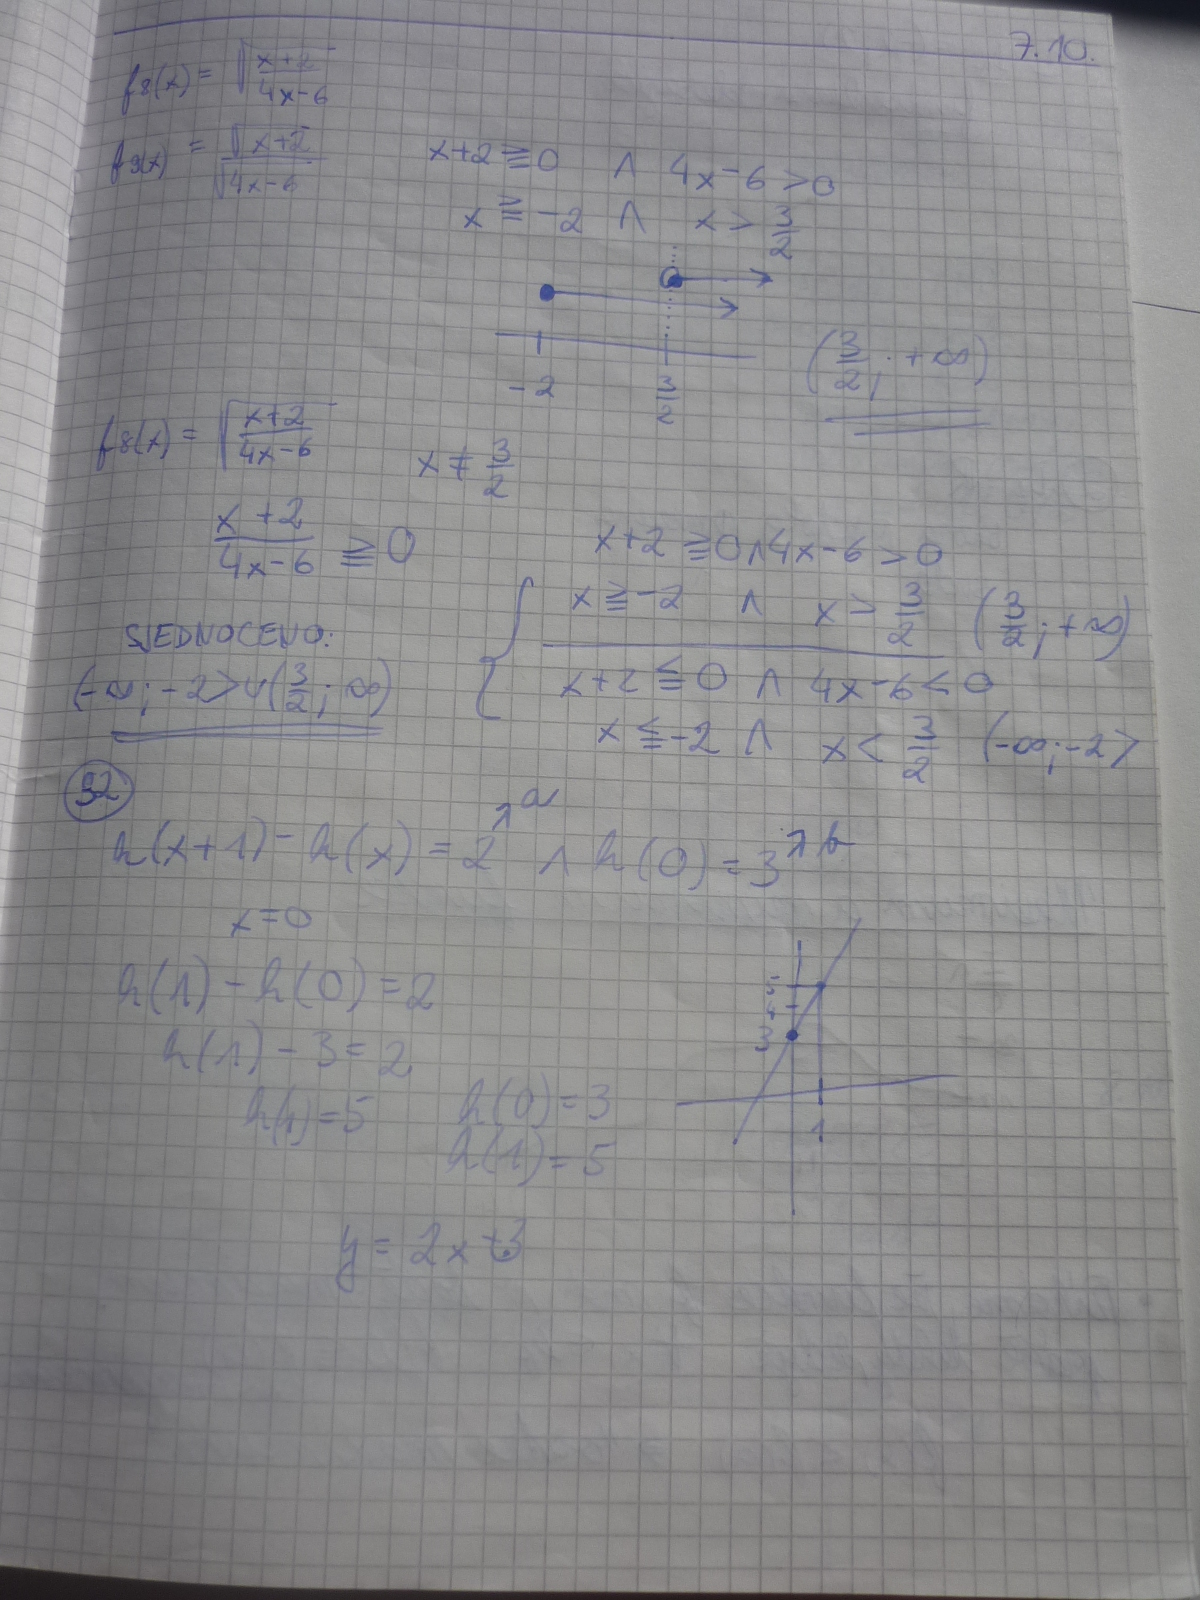 7.10.
f8(x) = √(x+2 / 4x-6)
f9(x) = √x+2 / √4x-6
x+2 ≧ 0 ∧ 4x-6 > 0
x ≧ -2 ∧ x > 3/2
-2 3/2
(3/2; +∞)
f8(x) = √(x+2 / 4x-6)
x ≠ 3/2
x+2 / 4x-6 ≧ 0
x+2 ≧ 0 ∧ 4x-6 > 0
x ≧ -2 ∧ x > 3/2 (3/2; +∞)
SJEDNOCENO:
(-∞; -2> ∪ (3/2; ∞)
x+2 ≦ 0 ∧ 4x-6 < 0
x ≦ -2 ∧ x < 3/2 (-∞; -2>
92
h(x+1) - h(x) = 2 ↗a ∧ h(0) = 3 ↗b
x=0
h(1) - h(0) = 2
h(1) - 3 = 2
h(1) = 5
h(0) = 3
h(1) = 5
5
4
3
1
y = 2x+3